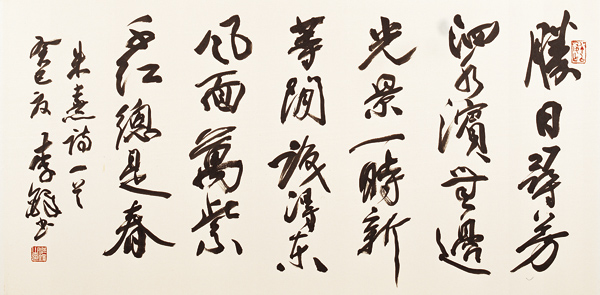 勝日尋芳
泗水濱無邊
光景一時新
等閒識得東
風面萬紫
千紅總是春
朱熹詩一首
癸巳夏李鐸書